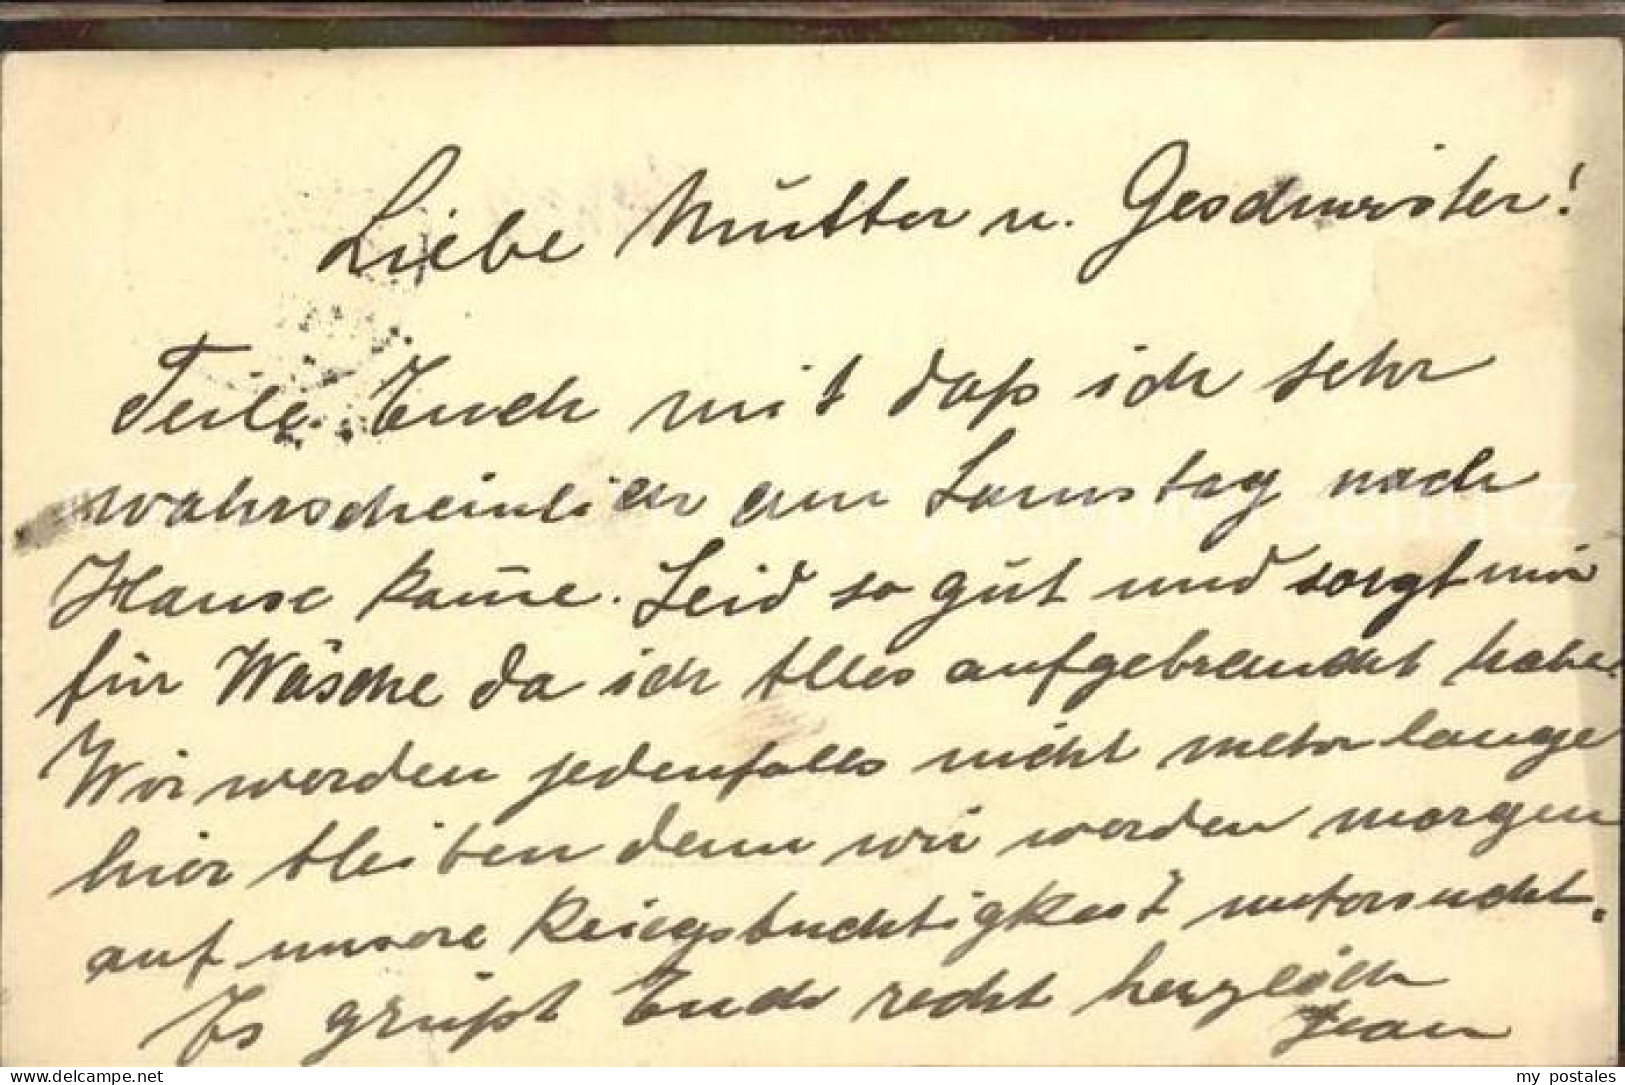 Liebe Mutter u. Geschwister!
Teile Euch mit daß ich sehr
wahrscheinlich am Samstag nach
Hause kom̄e. Seid so gut und sorgt mir
für Wäsche da ich Alles aufgebraucht habe.
Wir werden jedenfalls nicht mehr lange
hier bleiben denn wir werden morgen
auf unsere untersucht.
Es grüßt Euch recht herzlich
Jean
my postales